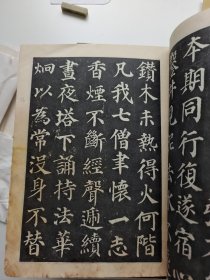 本期同行復遂宿
鑽木未熱得火何階
凡我七僧聿懷一志
香煙不斷經聲遞續
晝夜塔下誦持法華
炯以為常沒身不替